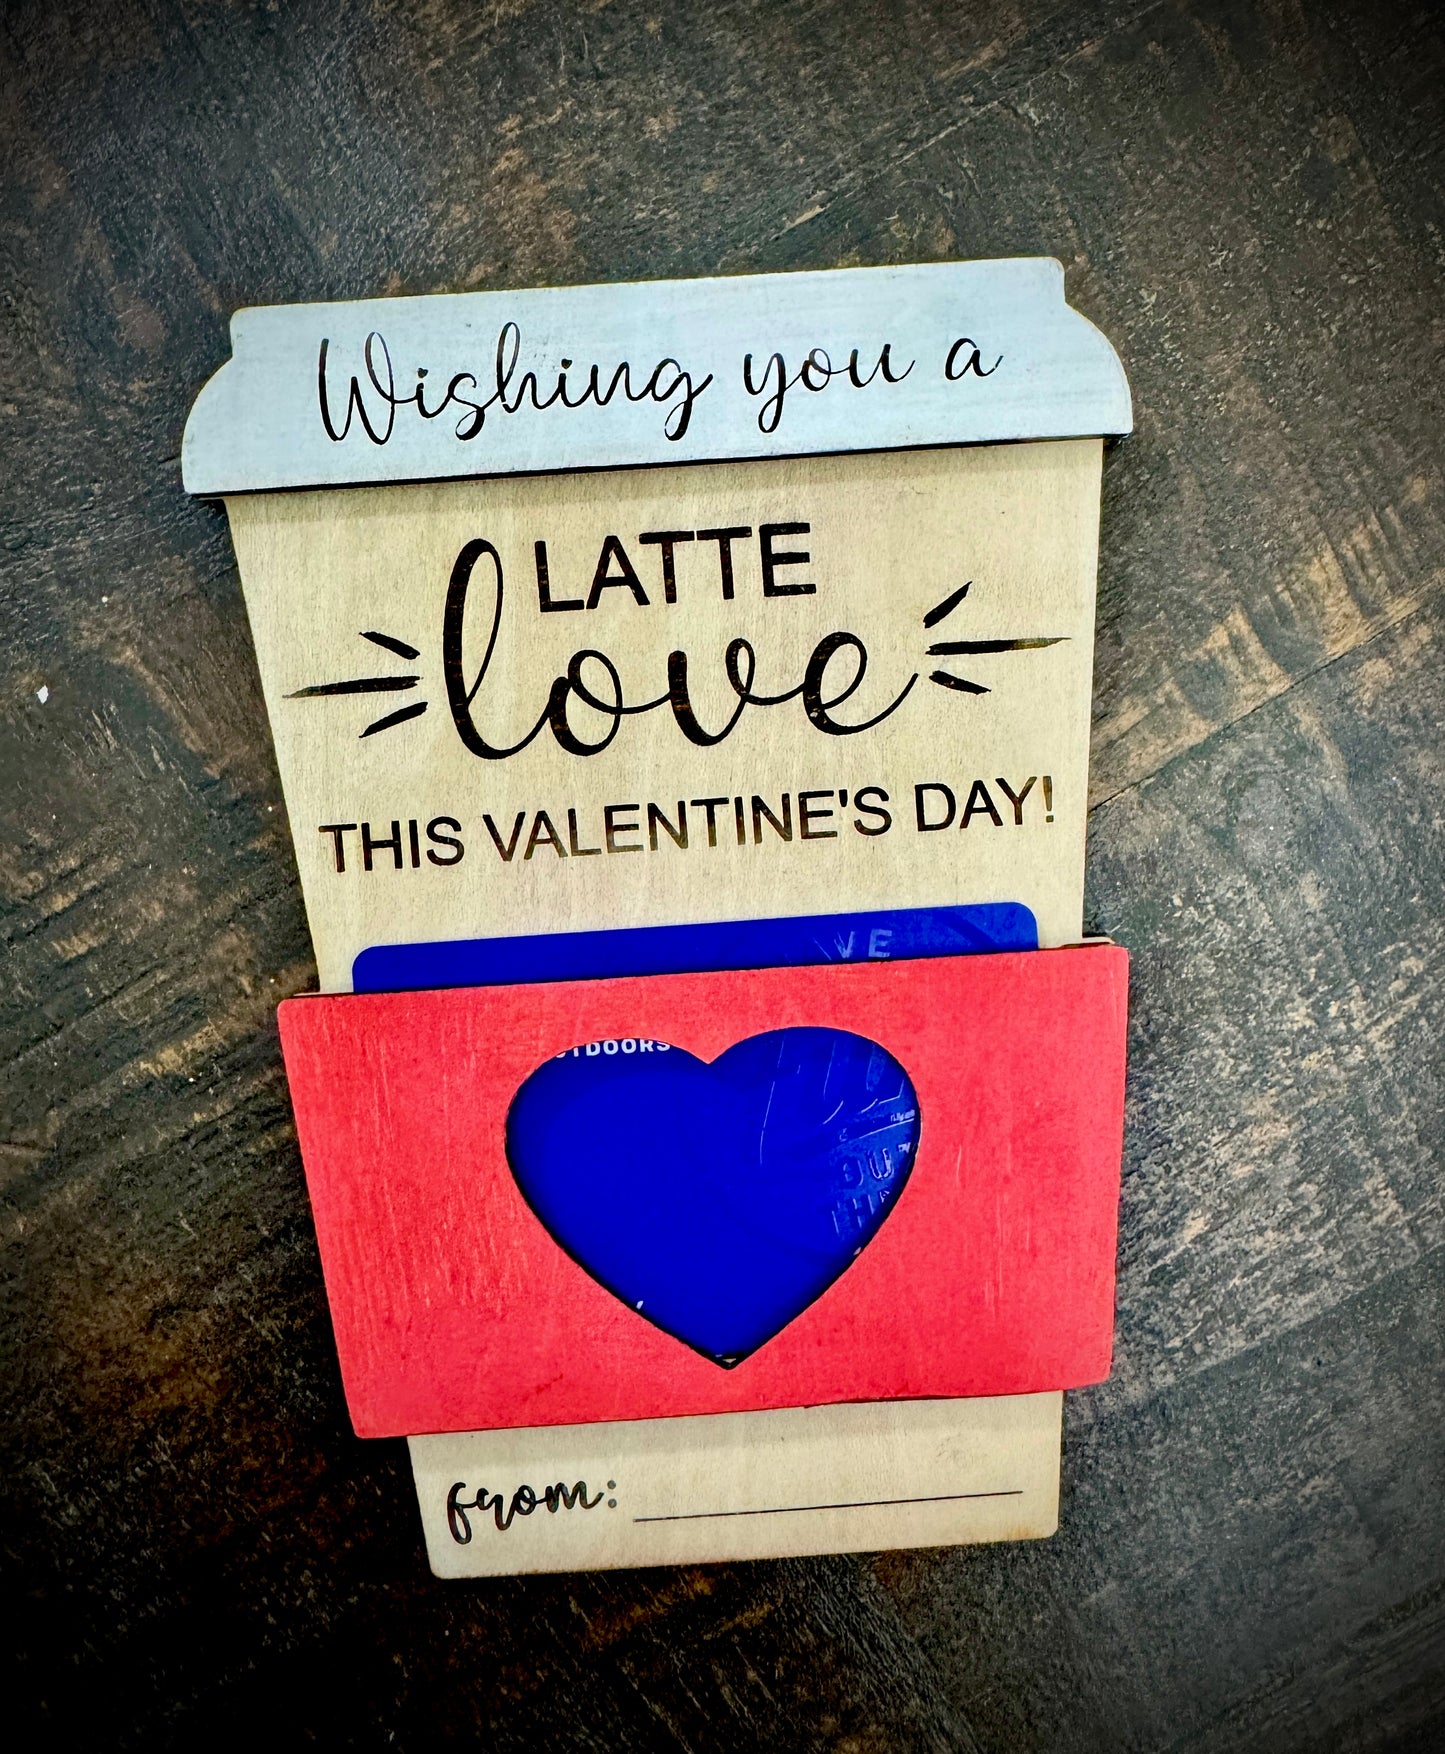 Wishing you a
LATTE
love
THIS VALENTINE'S DAY!
VE
TDOORS
OU
HA
from: